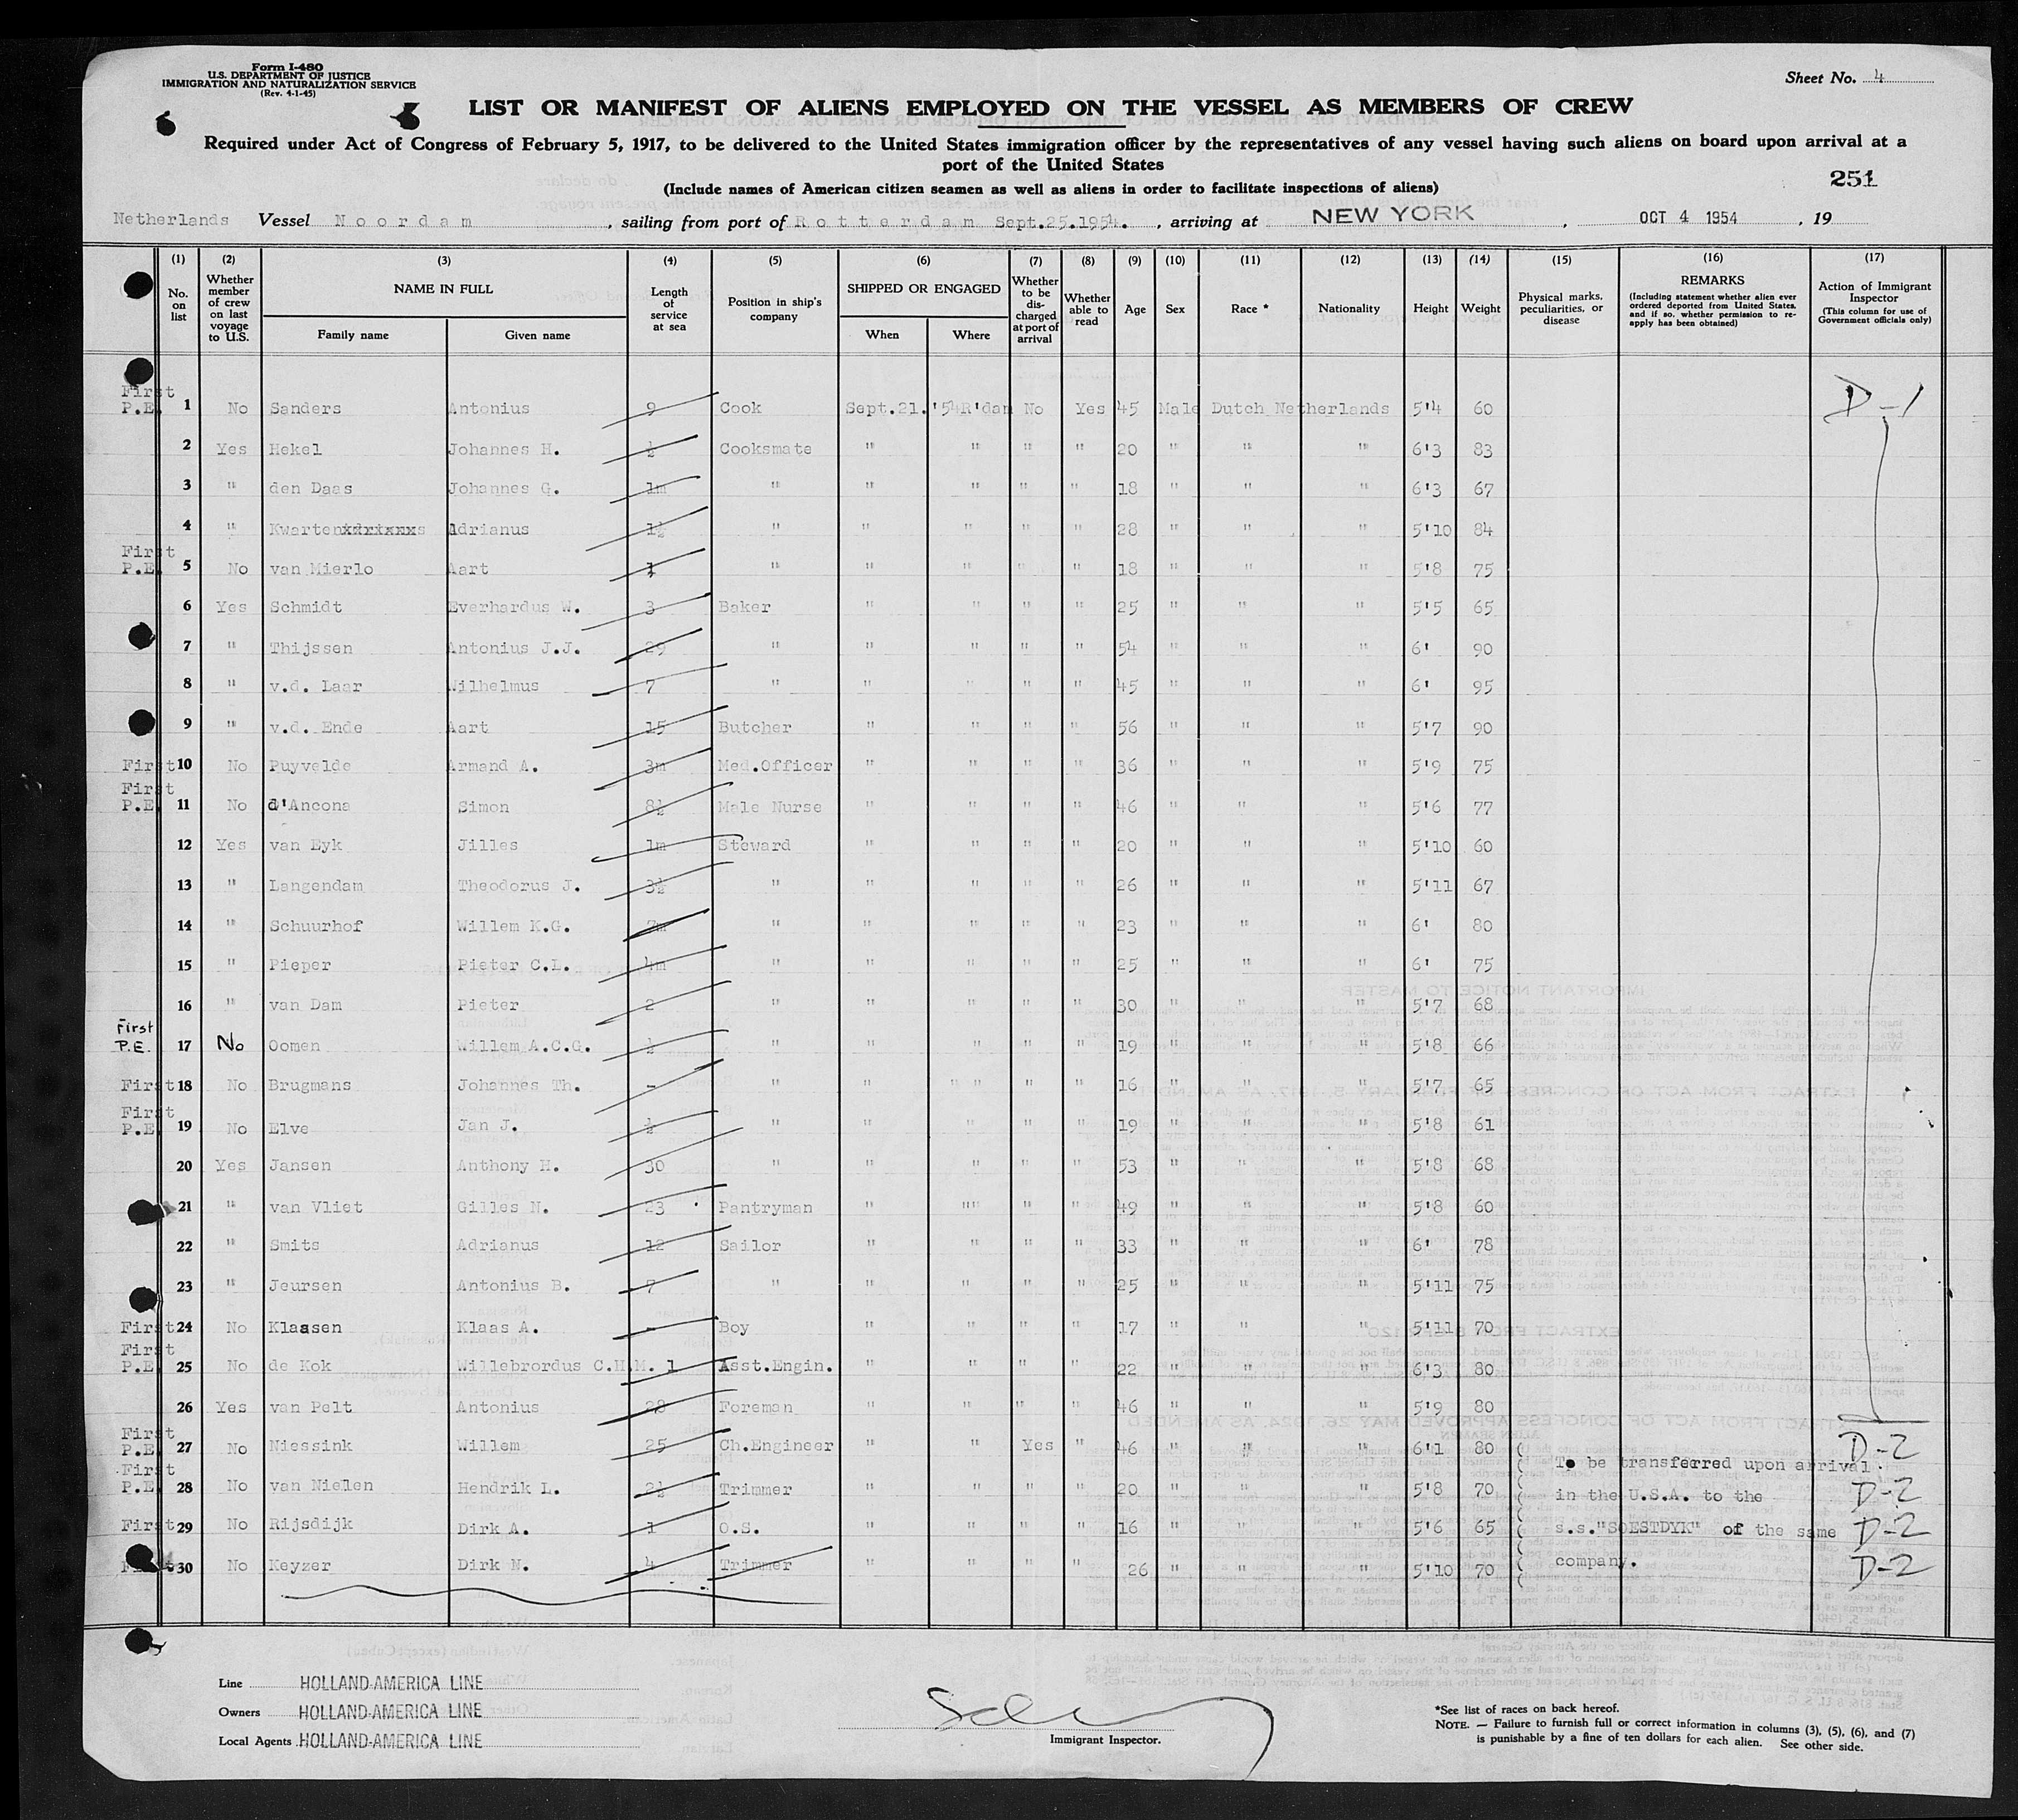 Form I-480
U.S. DEPARTMENT OF JUSTICE
IMMIGRATION AND NATURALIZATION SERVICE
(Rev. 4-1-45)
Sheet No. 4
LIST OR MANIFEST OF ALIENS EMPLOYED ON THE VESSEL AS MEMBERS OF CREW
Required under Act of Congress of February 5, 1917, to be delivered to the United States immigration officer by the representatives of any vessel having such aliens on board upon arrival at a
port of the United States
(Include names of American citizen seamen as well as aliens in order to facilitate inspections of aliens)
251
Netherlands Vessel Noordam, sailing from port of Rotterdam Sept.25.1954., arriving at NEW YORK, OCT 4 1954, 19
(1) (2) (3) (4) (5) (6) (7) (8) (9) (10) (11) (12) (13) (14) (15) (16) (17)
No. on list Whether member of crew on last voyage to U.S. NAME IN FULL Family name Given name Length of service at sea Position in ship's company SHIPPED OR ENGAGED When Where Whether to be discharged at port of arrival Whether able to read Age Sex Race * Nationality Height Weight Physical marks, peculiarities, or disease REMARKS (Including statement whether alien ever ordered deported from United States, and if so, whether permission to re-apply has been obtained) Action of Immigrant Inspector (This column for use of Government officials only)
First P.E. 1 No Sanders Antonius 9 Cook Sept.21.'54 R'dam No Yes 45 Male Dutch Netherlands 5'4 60 D-1
2 Yes Hekel Johannes H. ½ Cooksmate " " " " 20 " " " 6'3 83
3 " den Daas Johannes G. 1m " " " " " 18 " " " 6'3 67
4 " Kwarten Adrianus 1½ " " " " " 28 " " " 5'10 84
First P.E. 5 No van Mierlo Aart 1 " " " " " 18 " " " 5'8 75
6 Yes Schmidt Everhardus W. 3 Baker " " " " 25 " " " 5'5 65
7 " Thijssen Antonius J.J. 29 " " " " " 54 " " " 6' 90
8 " v.d. Laar Wilhelmus 7 " " " " " 45 " " " 6' 95
9 " v.d. Ende Aart 15 Butcher " " " " 56 " " " 5'7 90
First 10 No Puyvelde Armand A. 3m Med.Officer " " " " 36 " " " 5'9 75
First P.E. 11 No d'Ancona Simon 8½ Male Nurse " " " " 46 " " " 5'6 77
12 Yes van Eyk Jilles 1m Steward " " " " 20 " " " 5'10 60
13 " Langendam Theodorus J. 3½ " " " " " 26 " " " 5'11 67
14 " Schuurhof Willem K.G. 7m " " " " " 23 " " " 6' 80
15 " Pieper Pieter C.L. 4m " " " " " 25 " " " 6' 75
16 " van Dam Pieter 2 " " " " " 30 " " " 5'7 68
First P.E. 17 No Oomen Willem A.C.G. ½ " " " " " 19 " " " 5'8 66
First 18 No Brugmans Johannes Th. - " " " " " " 16 " " " 5'7 65
First P.E. 19 No Elve Jan J. ½ " " " " " 19 " " " 5'8 61
20 Yes Jansen Anthony H. 30 " " " " " 53 " " " 5'8 68
21 " van Vliet Gilles N. 23 Pantryman " " " " 49 " " " 5'8 60
22 " Smits Adrianus 12 Sailor " " " " 33 " " " 6' 78
23 " Jeursen Antonius B. 7 " " " " " 25 " " " 5'11 75
First 24 No Klaasen Klaas A. - Boy " " " " 17 " " " 5'11 70
First P.E. 25 No de Kok Willebrordus C.H.M. 1 Asst.Engin. " " " " 22 " " " 6'3 80
26 Yes van Pelt Antonius 28 Foreman " " " " 46 " " " 5'9 80
First P.E. 27 No Niessink Willem 25 Ch.Engineer " " Yes " 46 " " " 6'1 80 D-2
To be transferred upon arrival.
First P.E. 28 No van Nielen Hendrik L. 2½ Trimmer " " " " 20 " " " 5'8 70 in the U.S.A. to the D-2
First 29 No Rijsdijk Dirk A. 1 O.S. " " " " 16 " " " 5'6 65 s.s."SOESTDYK" of the same D-2
First 30 No Keyzer Dirk N. 4 Trimmer " " " " 26 " " " 5'10 70 company. D-2
Line HOLLAND-AMERICA LINE
Owners HOLLAND-AMERICA LINE
Local Agents HOLLAND-AMERICA LINE
Immigrant Inspector.
*See list of races on back hereof.
NOTE. — Failure to furnish full or correct information in columns (3), (5), (6), and (7)
is punishable by a fine of ten dollars for each alien. See other side.